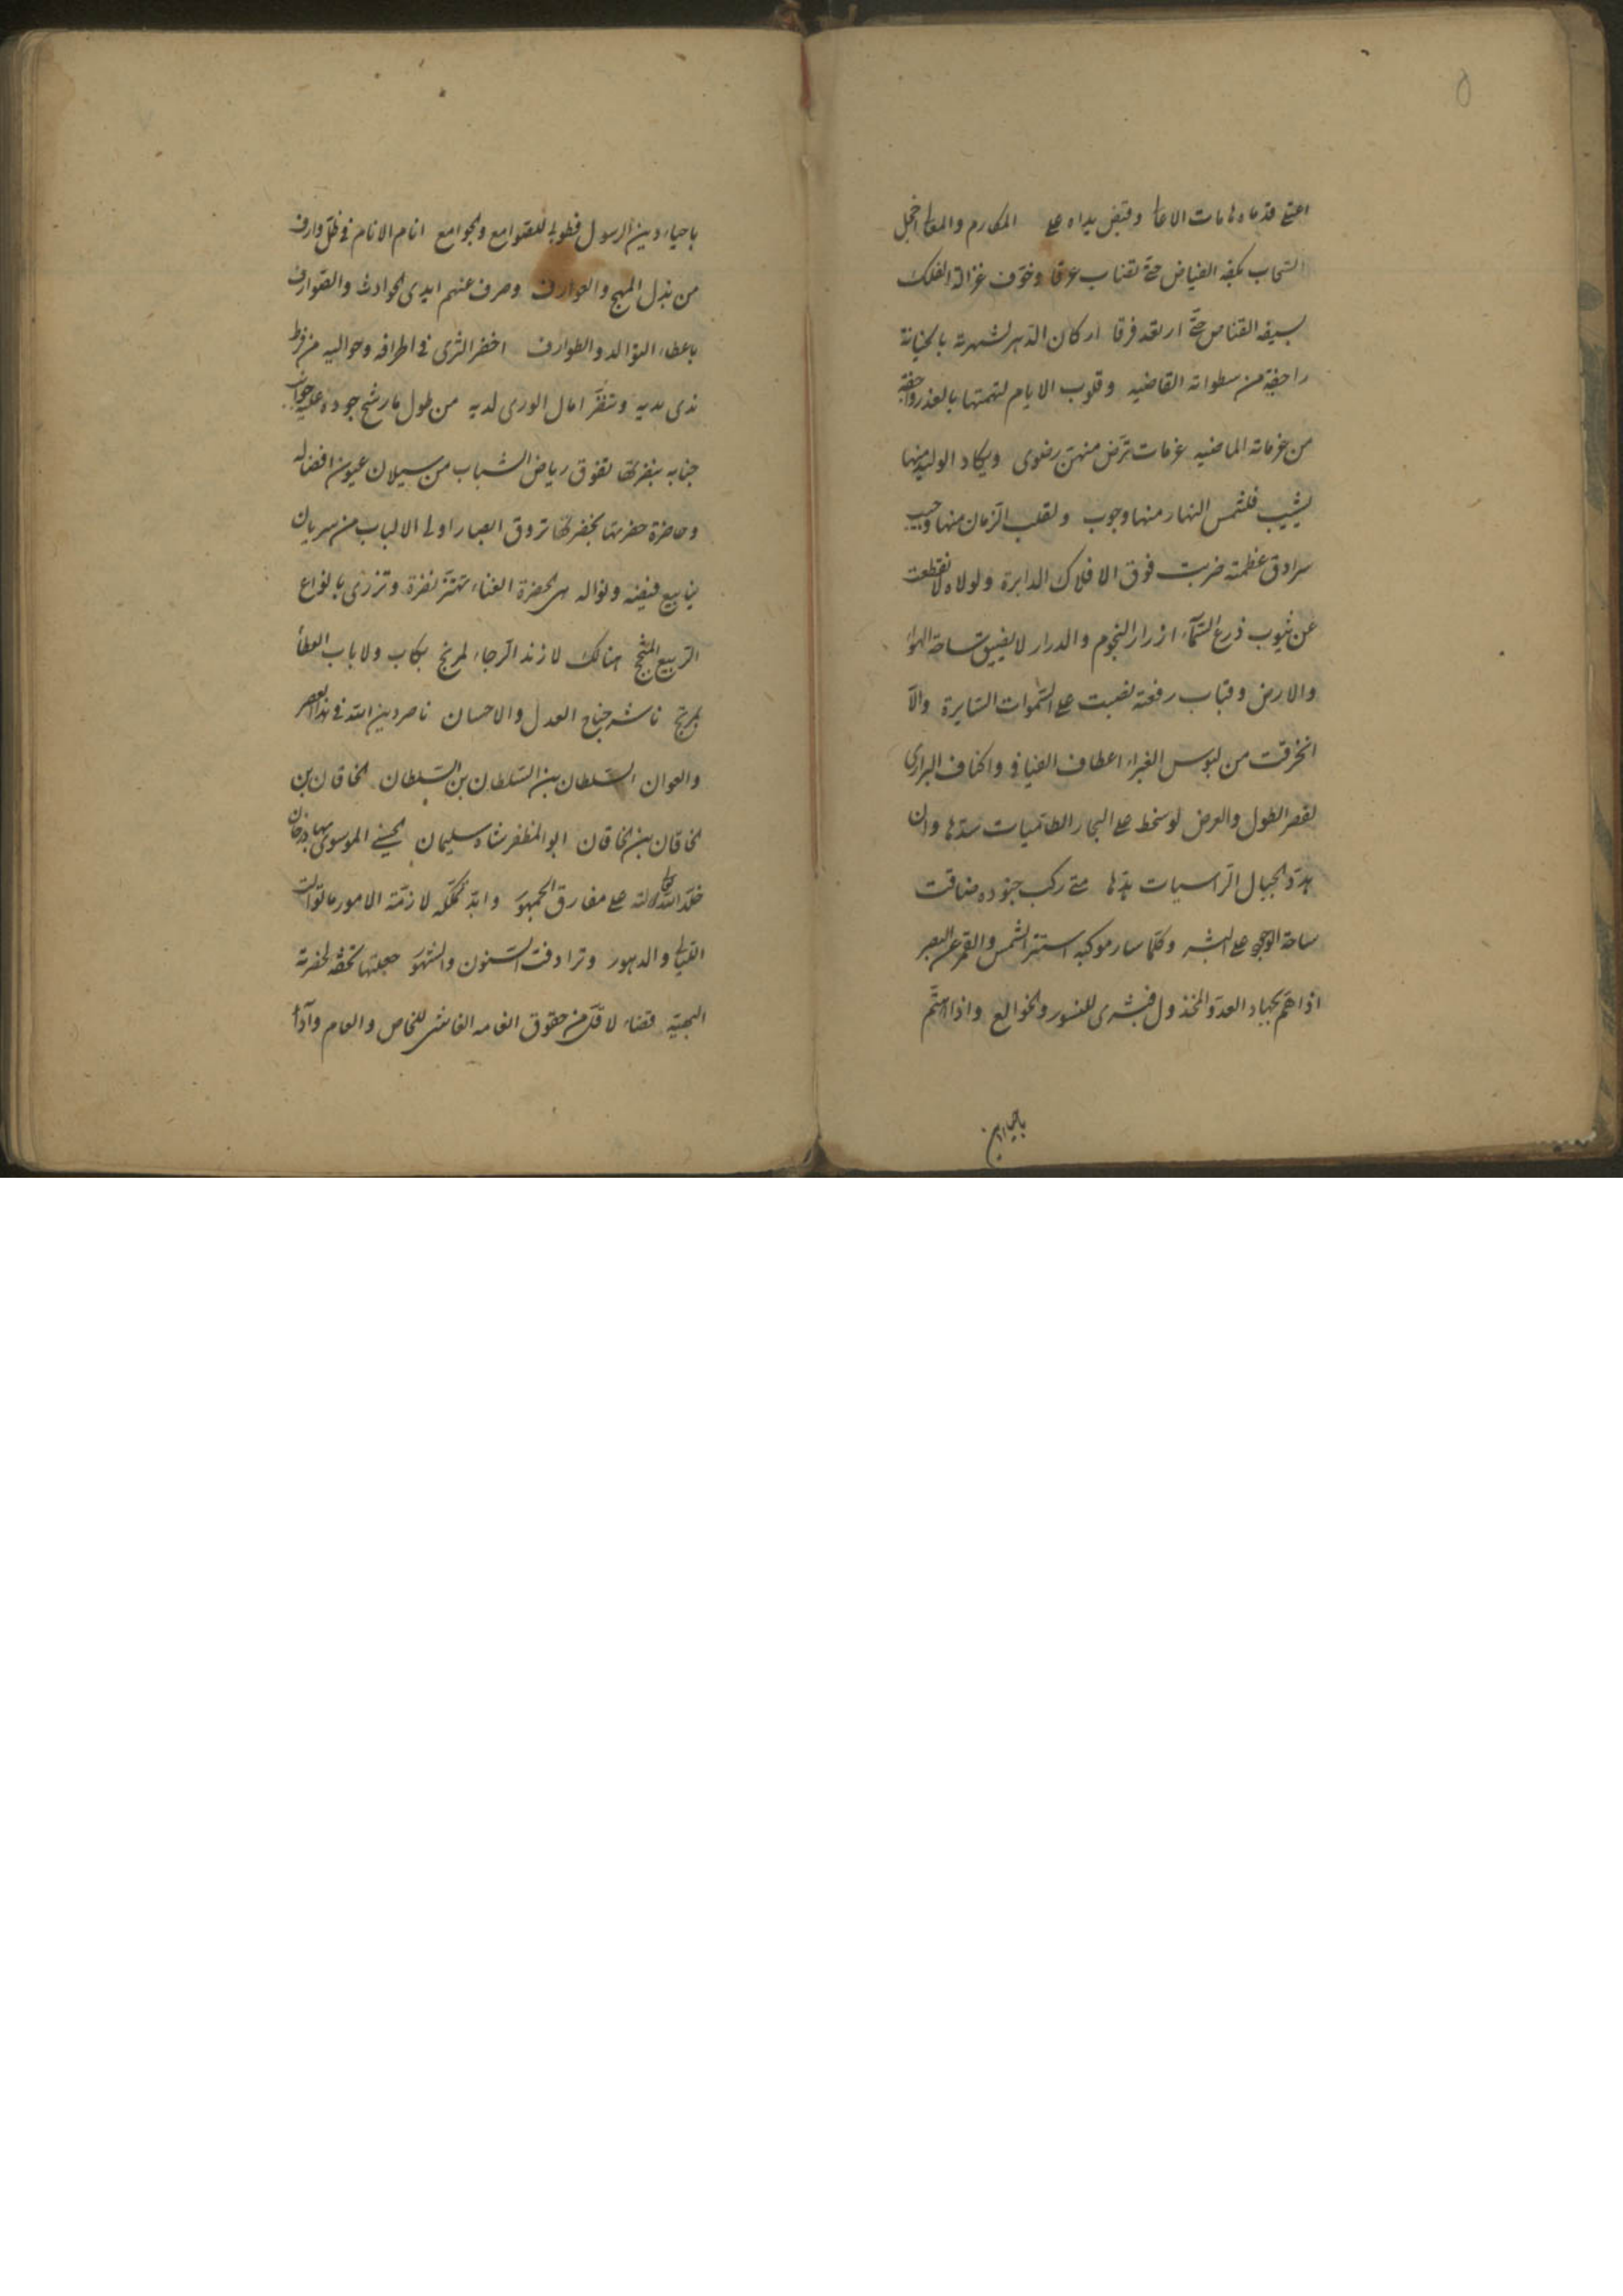 اعتلى قدماه هامات الاعالى وقبض يداه على المكارم والمعالى اخجل
السحاب بكفه الفياض حتى تقناب عرقا وخوف غزالة الفلك
بسيفه القناص حتى ارتعد فرقا اركان الدهر لشهرته بالخيانة
راجفة من سطواته القاضيه وقلوب الايام لتهمتها بالغدر واجفة
من عزماته الماضيه عزمات ترض منهن رضوى ويكاد الوليد منها
يشيب فلشمس النهار منها وجوب ولقلب الزمان منها وجيب
سرادق عظمته ضربت فوق الافلاك الدايرة ولولاه لانقطعت
عن جيوب درع السماء ازرار النجوم والدرار لا يضيق ساحة الهواء
والارض وقباب رفعته نصبت على السموات السايرة والا
انخرقت من لبوس الغبراء اعطاف الفيافى واكناف البرارى
لقصر الطول والعرض لو سخط على البحار الطاميات سدها وان
هدد الجبال الراسيات هدها متى ركب جنوده ضاقت
ساحة الوجود على البشر وكلما سار موكبه استتر الشمس والقمر عن البصر
اذا هم بجهاد العدو المخذول فبشرى للنسور والخوامع واذا اهتم
باحياء دين
باحياء دين الرسول فطوبى للصوامع والجوامع انام الانام فى ظل وارف
من بذل المهج والعوارف وصرف عنهم ايدى الحوادث والصوارف
باعطاء التوالد والطوارف اخضر الثرى فى اطرافه وحواليه من فرط
ندى يديه وتنضر امال الورى لديه من طول ما رشح جوده عليه جوانب
جنابه بنضرتها تفوق رياض الشباب من سيلان عيون افضاله
وحاضرة حضرتها بخضرتها تروق ابصار اولى الالباب من سريان
ينابيع فيضه ونواله هى الحضرة الغناء تهتز نضرة وتزرى بانواع
الربيع المثبج هنالك لا زند الرجاء لمرتج بكاب ولا باب العطاء
بمرتج ناشر جناح العدل والاحسان ناصر دين الله فى هذا العصر
والعوان السلطان بن السلطان بن السلطان الخاقان بن
الخاقان بن الخاقان ابو المظفر شاه سليمان الحسينى الموسوى بهادر خان
خلد الله تعالى ظلاله على مفارق الجمهور وابد تملكه لازمة الامور ما توالت
الليالى والدهور وترادفت السنون والشهور جعلتها تحفة لحضرته
البهية قضاء لاقل من حقوق انعامه الفاشى للخاص والعام واداء